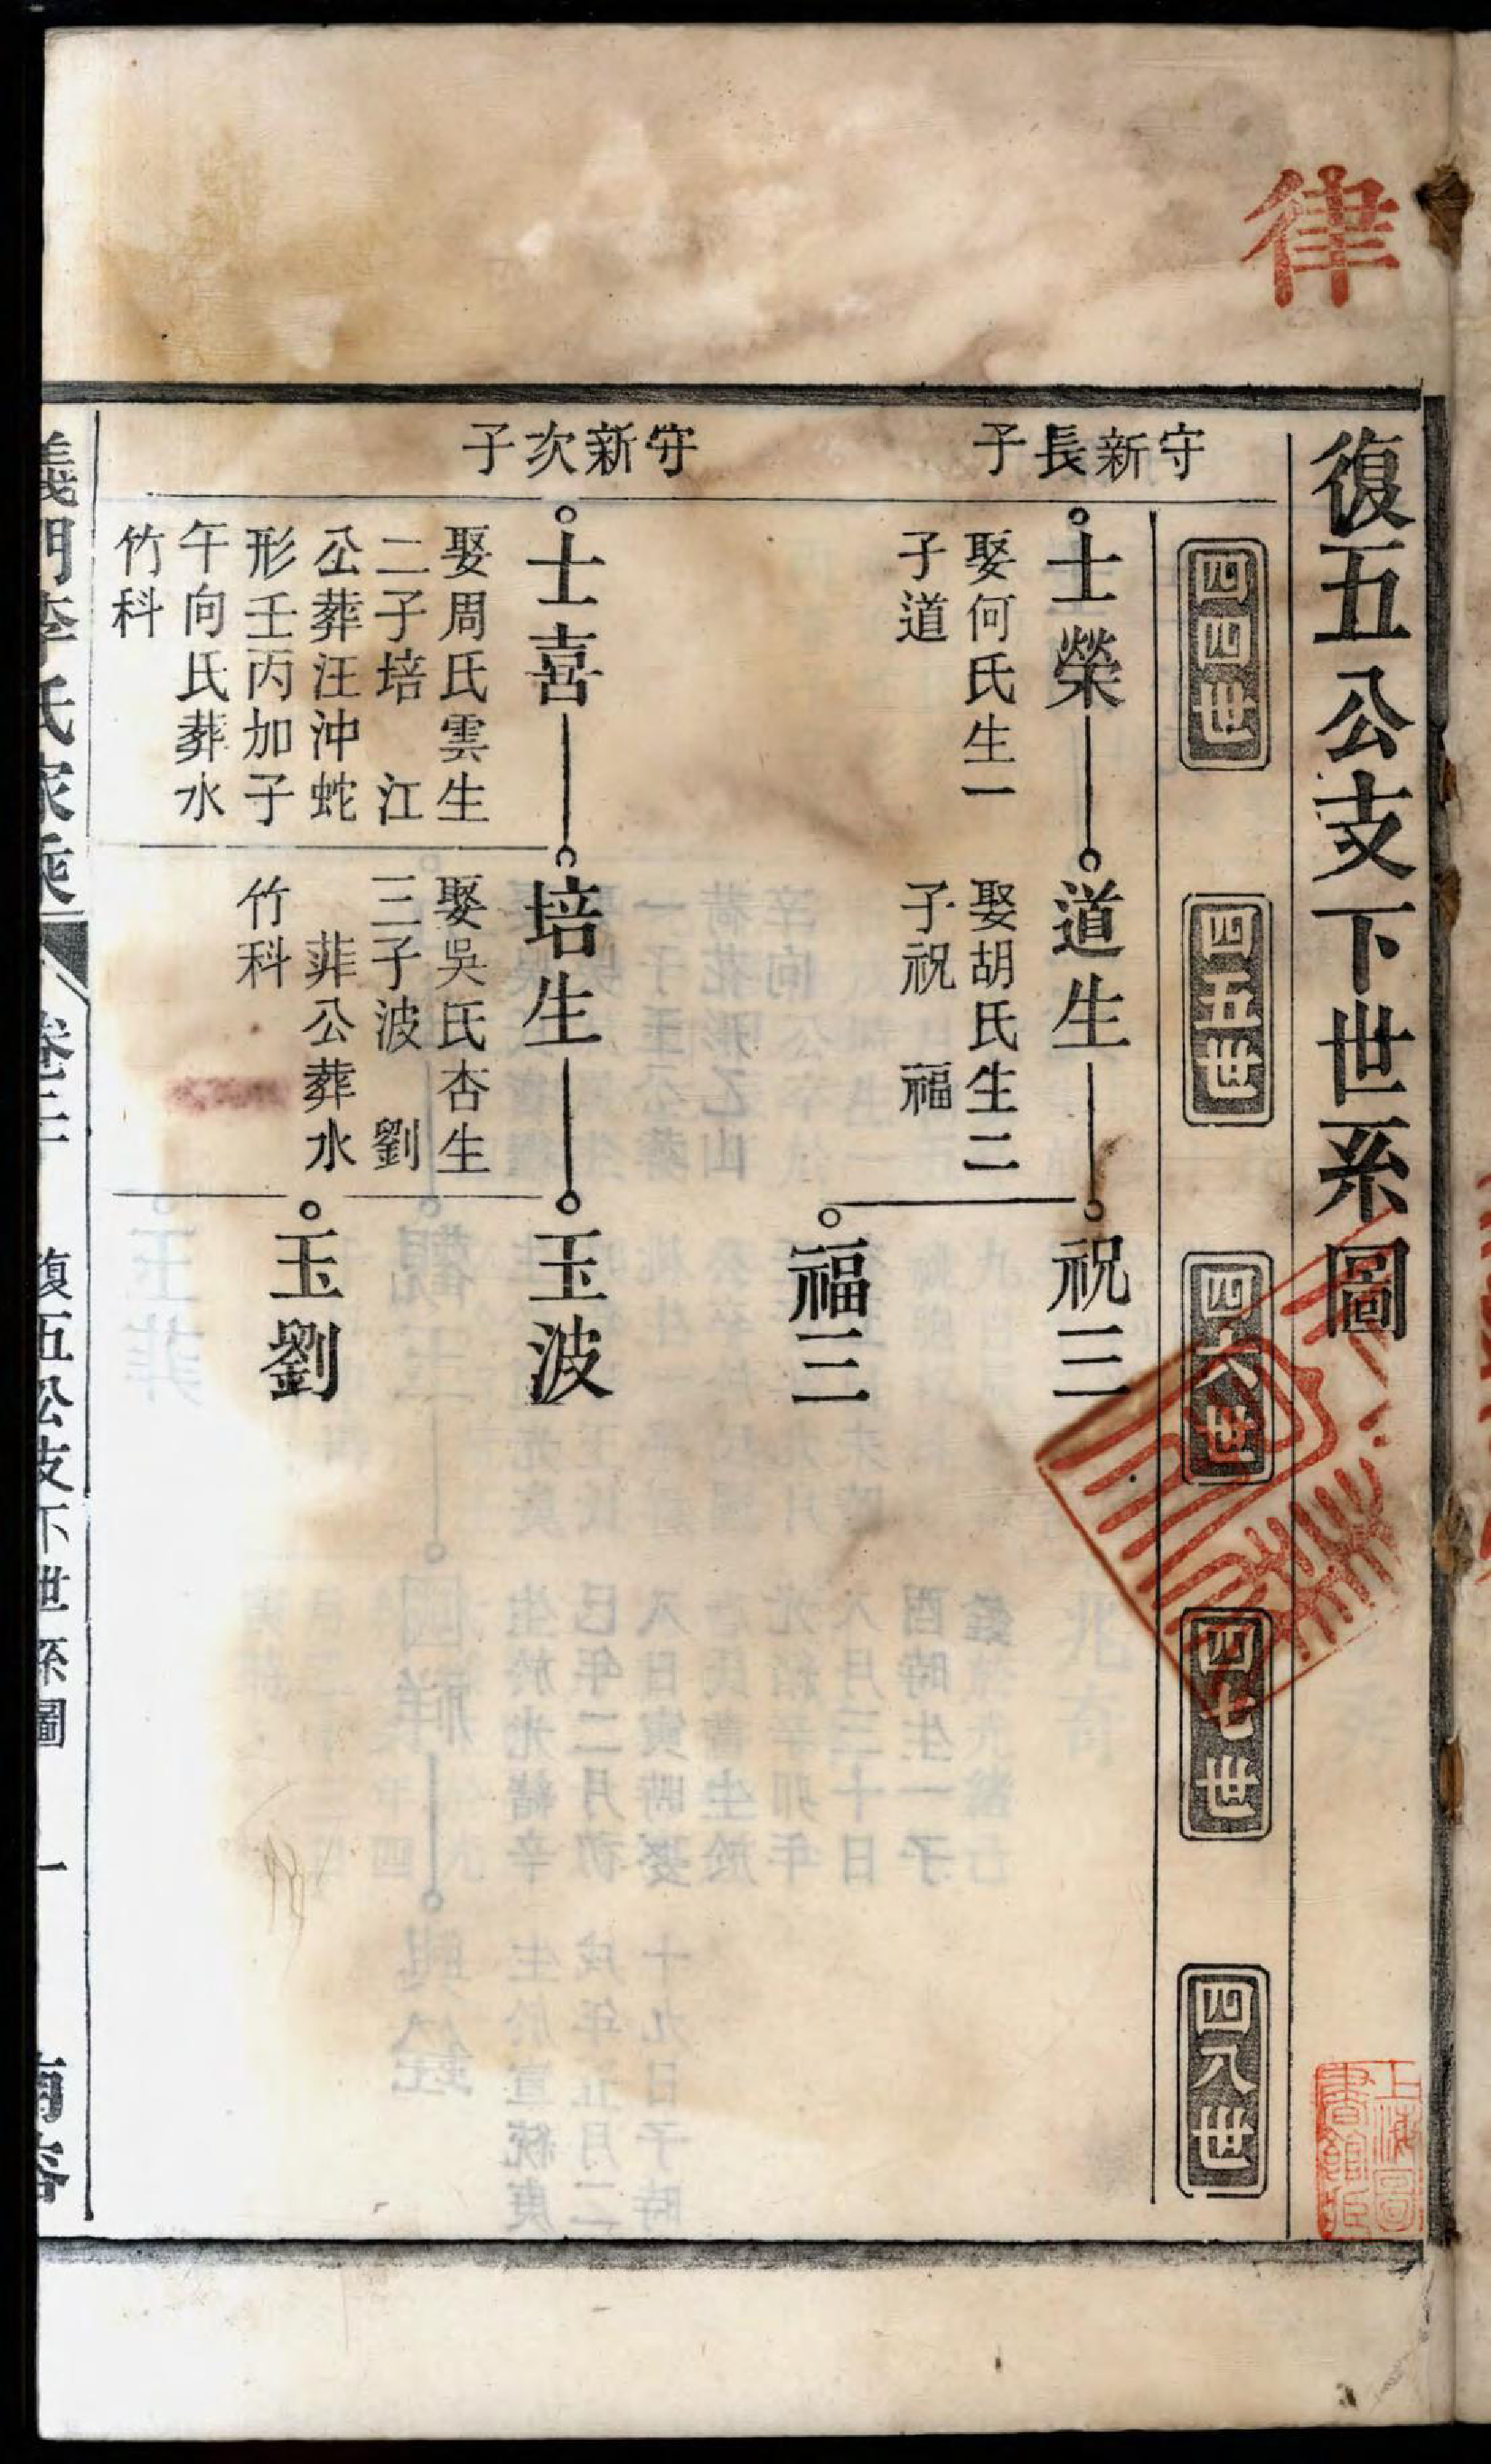 律
復五公支下世系圖
四四世
四五世
四六世
四七世
四八世
守新長子
士榮
娶何氏生一
子道
道生
娶胡氏生二
子祝 福
祝三
福三
守新次子
士喜
娶周氏雲生
二子培 江
公葬汪沖蛇
形壬丙加子
午向氏葬水
竹科
培生
娶吳氏杏生
三子波 劉
菲公葬水
竹科
玉波
玉劉
義門李氏家乘
復五公支下世系圖
一
上海圖
書館藏